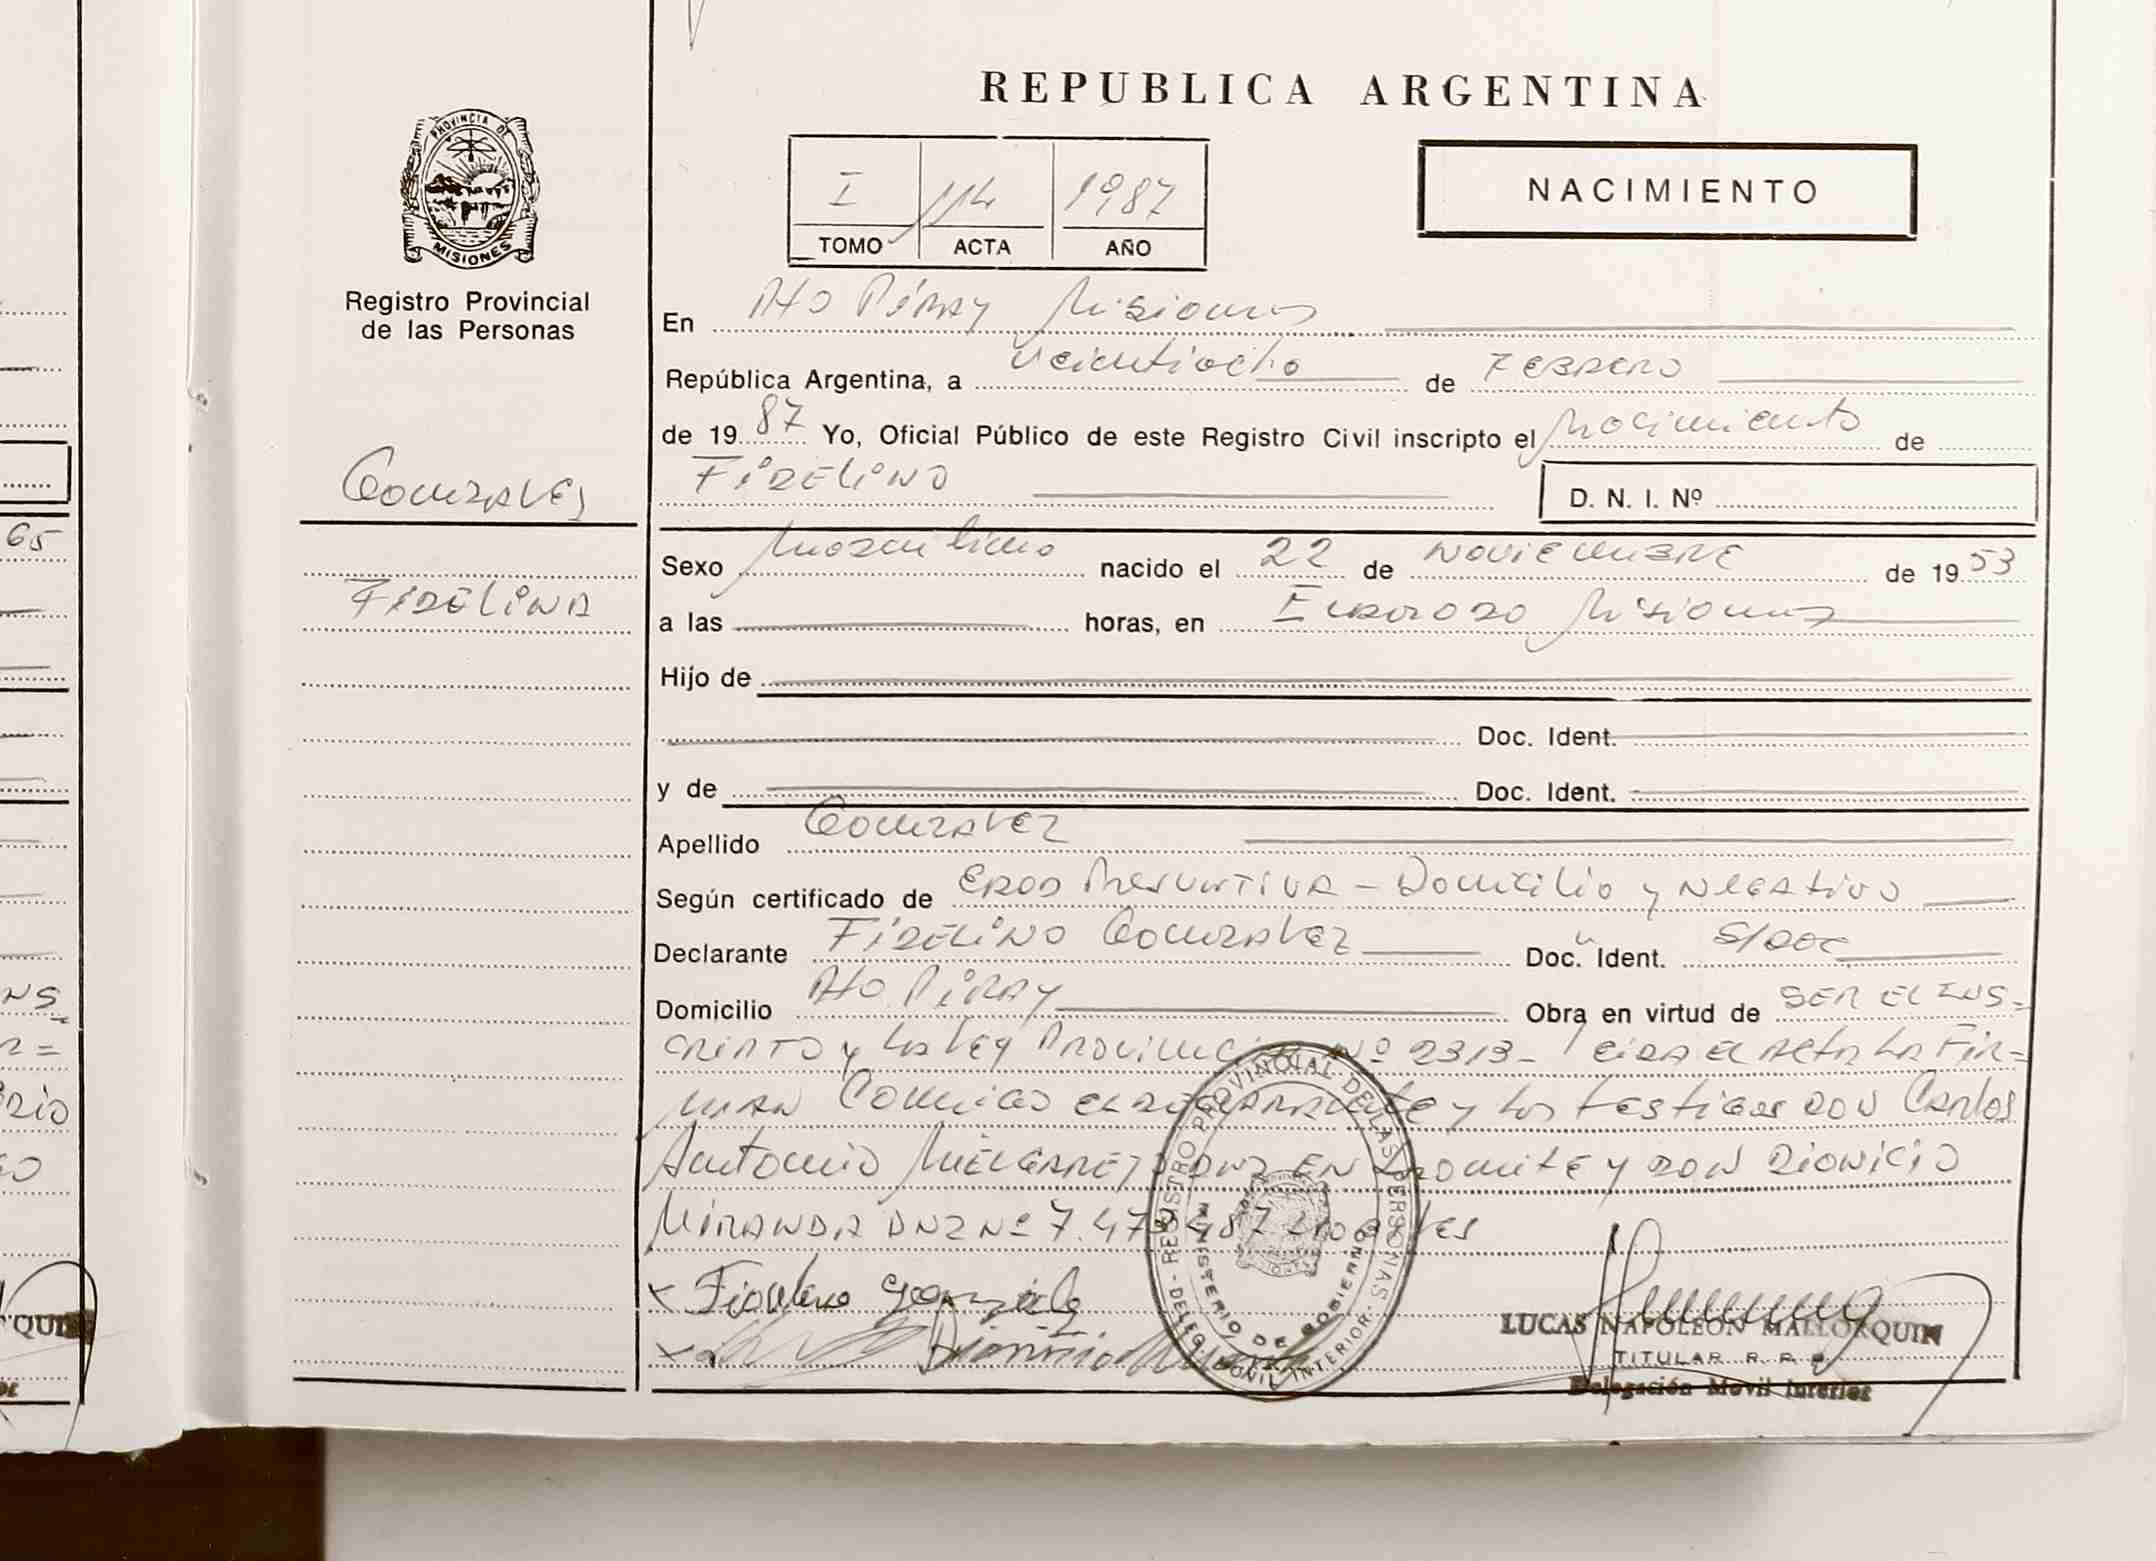 REPUBLICA ARGENTINA
PROVINCIA DE
MISIONES
Registro Provincial
de las Personas
I 114 1987
TOMO ACTA AÑO
NACIMIENTO
En Pto Piray Misiones
República Argentina, a veintiocho de FEBRERO
de 1987 Yo, Oficial Público de este Registro Civil inscripto el Nacimiento de
FIDELINO
D. N. I. Nº
GONZALEZ
FIDELINA
Sexo Masculino nacido el 22 de NOVIEMBRE de 1953
a las horas, en ELDORADO Misiones
Hijo de
Doc. Ident.
y de Doc. Ident.
Apellido GONZALEZ
Según certificado de EDAD PRESUNTIVA - Domicilio y NEGATIVO
Declarante FIDELINO GONZALEZ Doc. Ident. S/DOC
Domicilio Pto. PIRAY Obra en virtud de SER EL INS=
CRIPTO y La Ley PROVINCIAL Nº 2313- Leida EL ACTA LA FIR=
MAN Conmigo EL DECLARANTE y Los testigos DON Carlos
Antonio MELGAREJO DNI EN tramite y DON DIONICIO
MIRANDA DNI Nº 7.47 487
x Fidelino Gonzalez
x Dionicio
REGISTRO PROVINCIAL DE LAS PERSONAS
MINISTERIO DE GOBIERNO
INTERIOR
LUCAS NAPOLEON MALLORQUIN
TITULAR R. P.
Delegación Movil Interior
65
QUIN